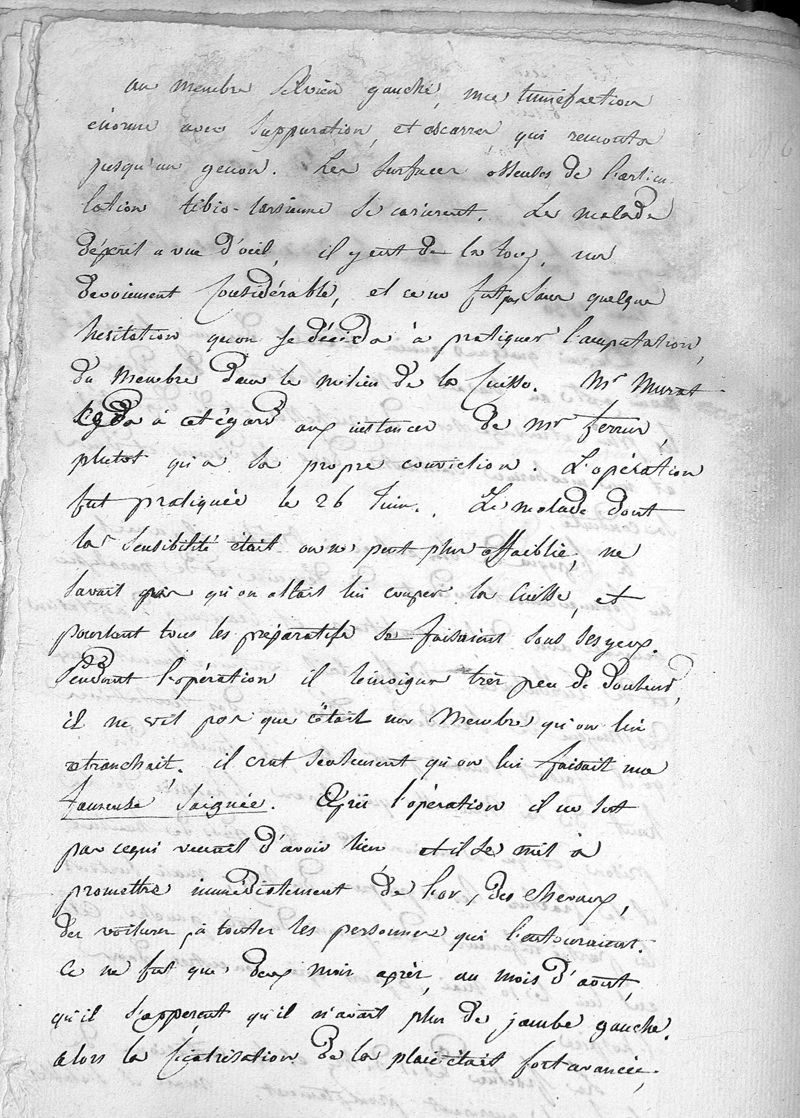 au membre pelvien gauche, une tuméfaction
énorme avec suppuration, et escarres qui remonta
jusqu'au genou. Les surfaces osseuses de l'articu-
lation tibio-tarsienne se carièrent. Le malade
dépérit a vue d'oeil, il y eut de la toux, un
devoiement considérable, et ce ne fut pas sans quelque
hesitation qu'on se décida à pratiquer l'amputation,
du membre dans le milieu de la cuisse. Mr Murat
céda à cet égard aux instances de Mr ferrus,
plutot qu'a sa propre conviction. L'opération
fut pratiquée le 26 Juin. Le malade dont
la sensibilité était on ne peut plus affaiblie, ne
savait pas qu'on allait lui couper la cuisse, et
pourtant tous les préparatifs se faisaient sous ses yeux.
Pendant l'opération il temoigna très peu de douleur,
il ne vit pas que c'était un membre qu'on lui
retranchait. il crut seulement qu'on lui faisait une
fameuse saignée. Après l'opération il ne sut
pas ce qui venait d'avoir lieu et il se mit à
promettre immédiatement de l'or, des chevaux,
des voitures, à toutes les personnes qui l'entouraient.
Ce ne fut que deux mois après, au mois d'aout,
qu'il s'apperçut qu'il n'avait plus de jambe gauche.
alors la cicatrisation de la plaie était fort avancée,